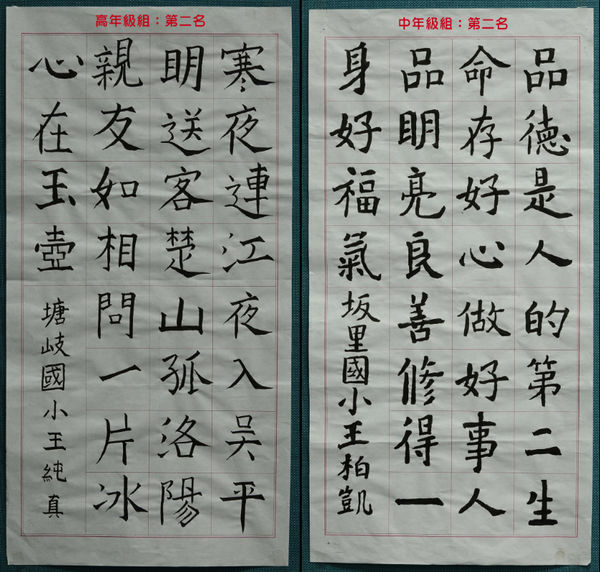 高年級組：第二名
寒夜連江夜入吳平
明送客楚山孤洛陽
親友如相問一片冰
心在玉壺 塘岐國小王純真
中年級組：第二名
品德是人的第二生
命存好心做好事人
品明亮良善修得一
身好福氣 坂里國小王柏凱